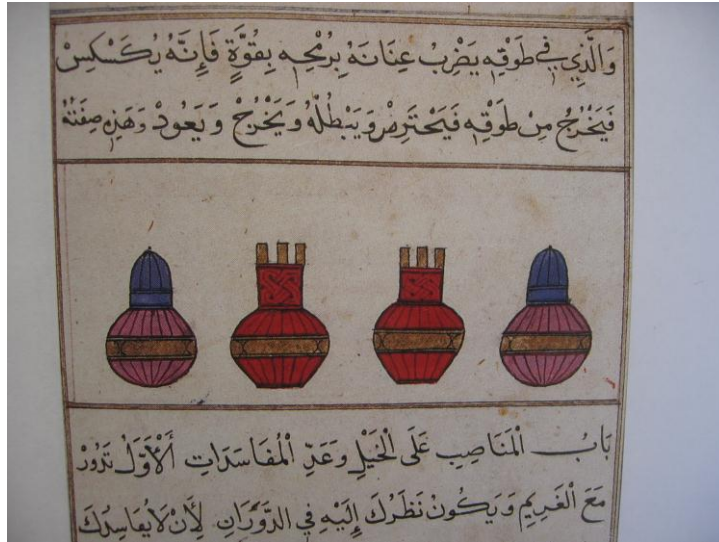 وَالَّذِي فِي طَوْقِهِ يَضْرِبُ عِنَانَهُ بِرُمْحِهِ بِقُوَّةٍ فَإِنَّهُ يُكَسْكِسْ
فَيَخْرُجُ مِنْ طَوْقِهِ فَيَحْتَرِصْ وَيَبْطُلُهُ وَيَخْرُجْ وَيَعُودْ وَهَذِهِ صِفَتُهُ
بَابُ الْمَنَاصِبِ عَلَى الْخَيْلِ وَعَدِّ الْمُفَاسَدَاتِ اَلْأَوَّلُ تَدُورْ
مَعَ الْغَرِيمِ وَيَكُونُ نَظَرُكَ إِلَيْهِ فِي الدَّوَرَانِ لِأَنْ لَا يُفَاسِدَكَ